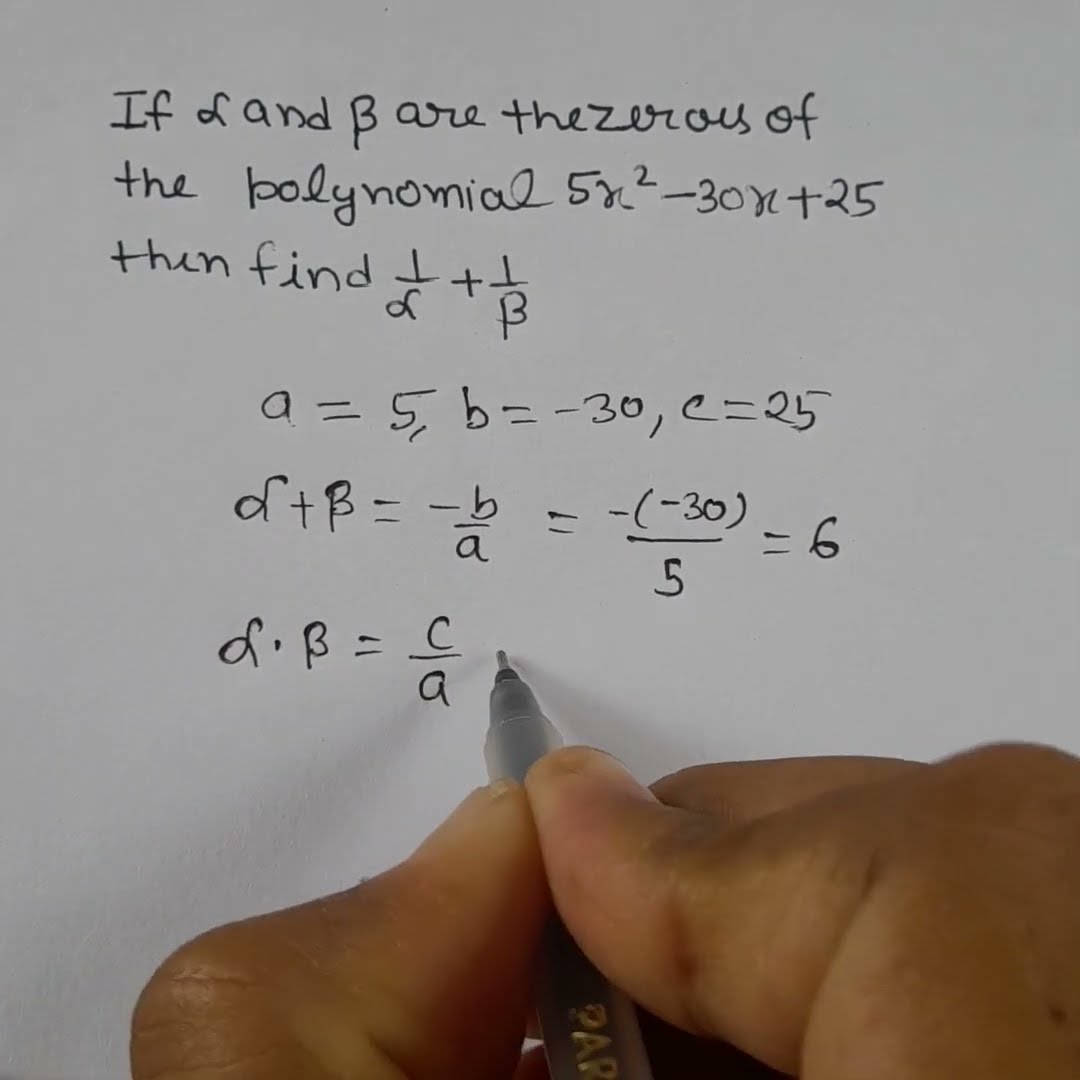 If α and β are the zerous of
the polynomial 5x² -30x+25
then find 1/α + 1/β
a = 5, b = -30, c = 25
α+β = -b/a = -(-30)/5 = 6
α·β = c/a
PAR